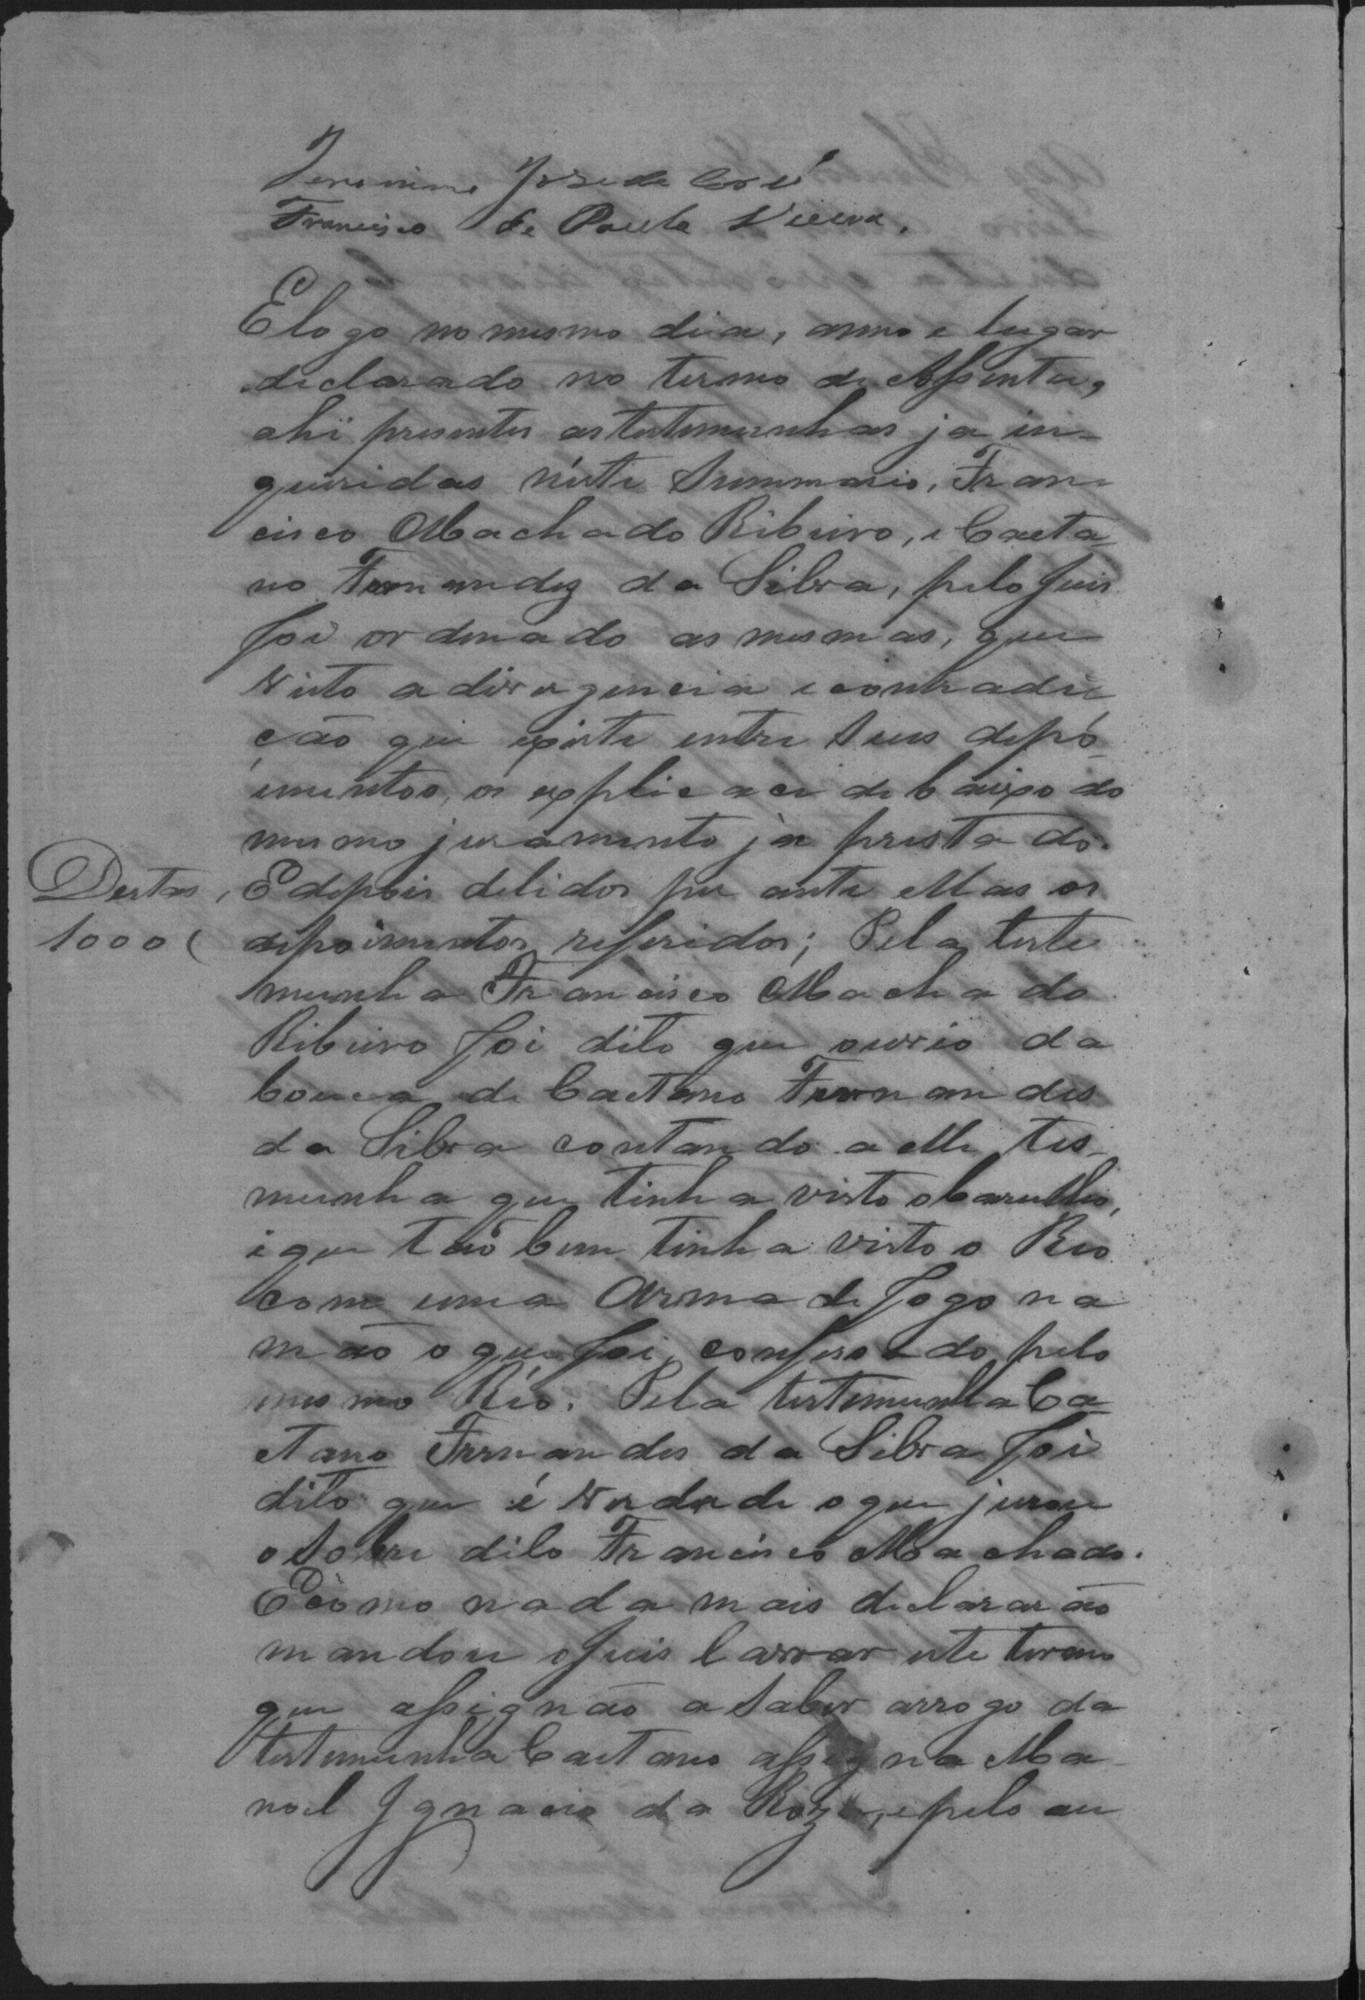 Jeronimo José de
Francisco de Paula Vieira.
E logo no mesmo dia, anno e lugar
declarado no termo de Assenta,
ahi presentes as testemunhas ja in-
queridas néste Summario, Fran-
cisco Machado Ribeiro, e Caeta
no Fernandez da Silva, pelo Juis
foi ordenado as mesmas, que
visto a divergencia e contradic
ção que existe entre seus depo
imentos, os explicace debaixo do
mesmo juramento ja prestado.
E depois de lidos per ante ellas os
depoimentos referidos; Pela teste
munha Francisco Machado
Ribeiro foi dito que ouvio da
bouca de Caetano Fernandes
da Silva contando a elle tes-
munha que tinha visto o barulho,
e que tão bem tinha visto o Réo
com uma Arma de fogo na
mão o que foi confessado pelo
mesmo Réo. Pela testemunha Ca
etano Fernandes da Silva foi
dito que é verdade o que jurou
o Sobre dito Francisco Machado.
E como nada mais declararão
mandou o Juis lavrar este termo
que assignão a saber arrogo da
testemunha Caetano assigna Ma-
noel Ignacio da Roza, e pelo au
Destas,
1000